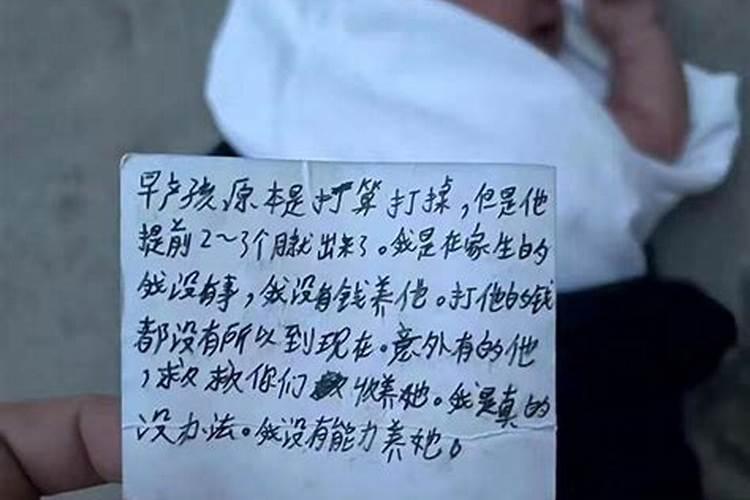 早产孩原本是打算打掉，但是他
提前2～3个月就出来了。我是在家生的
我没有事，我没有钱养他。打他的钱
都没有所以到现在。意外有的他
，求求你们收养她。我是真的
没办法。我没有能力养她。